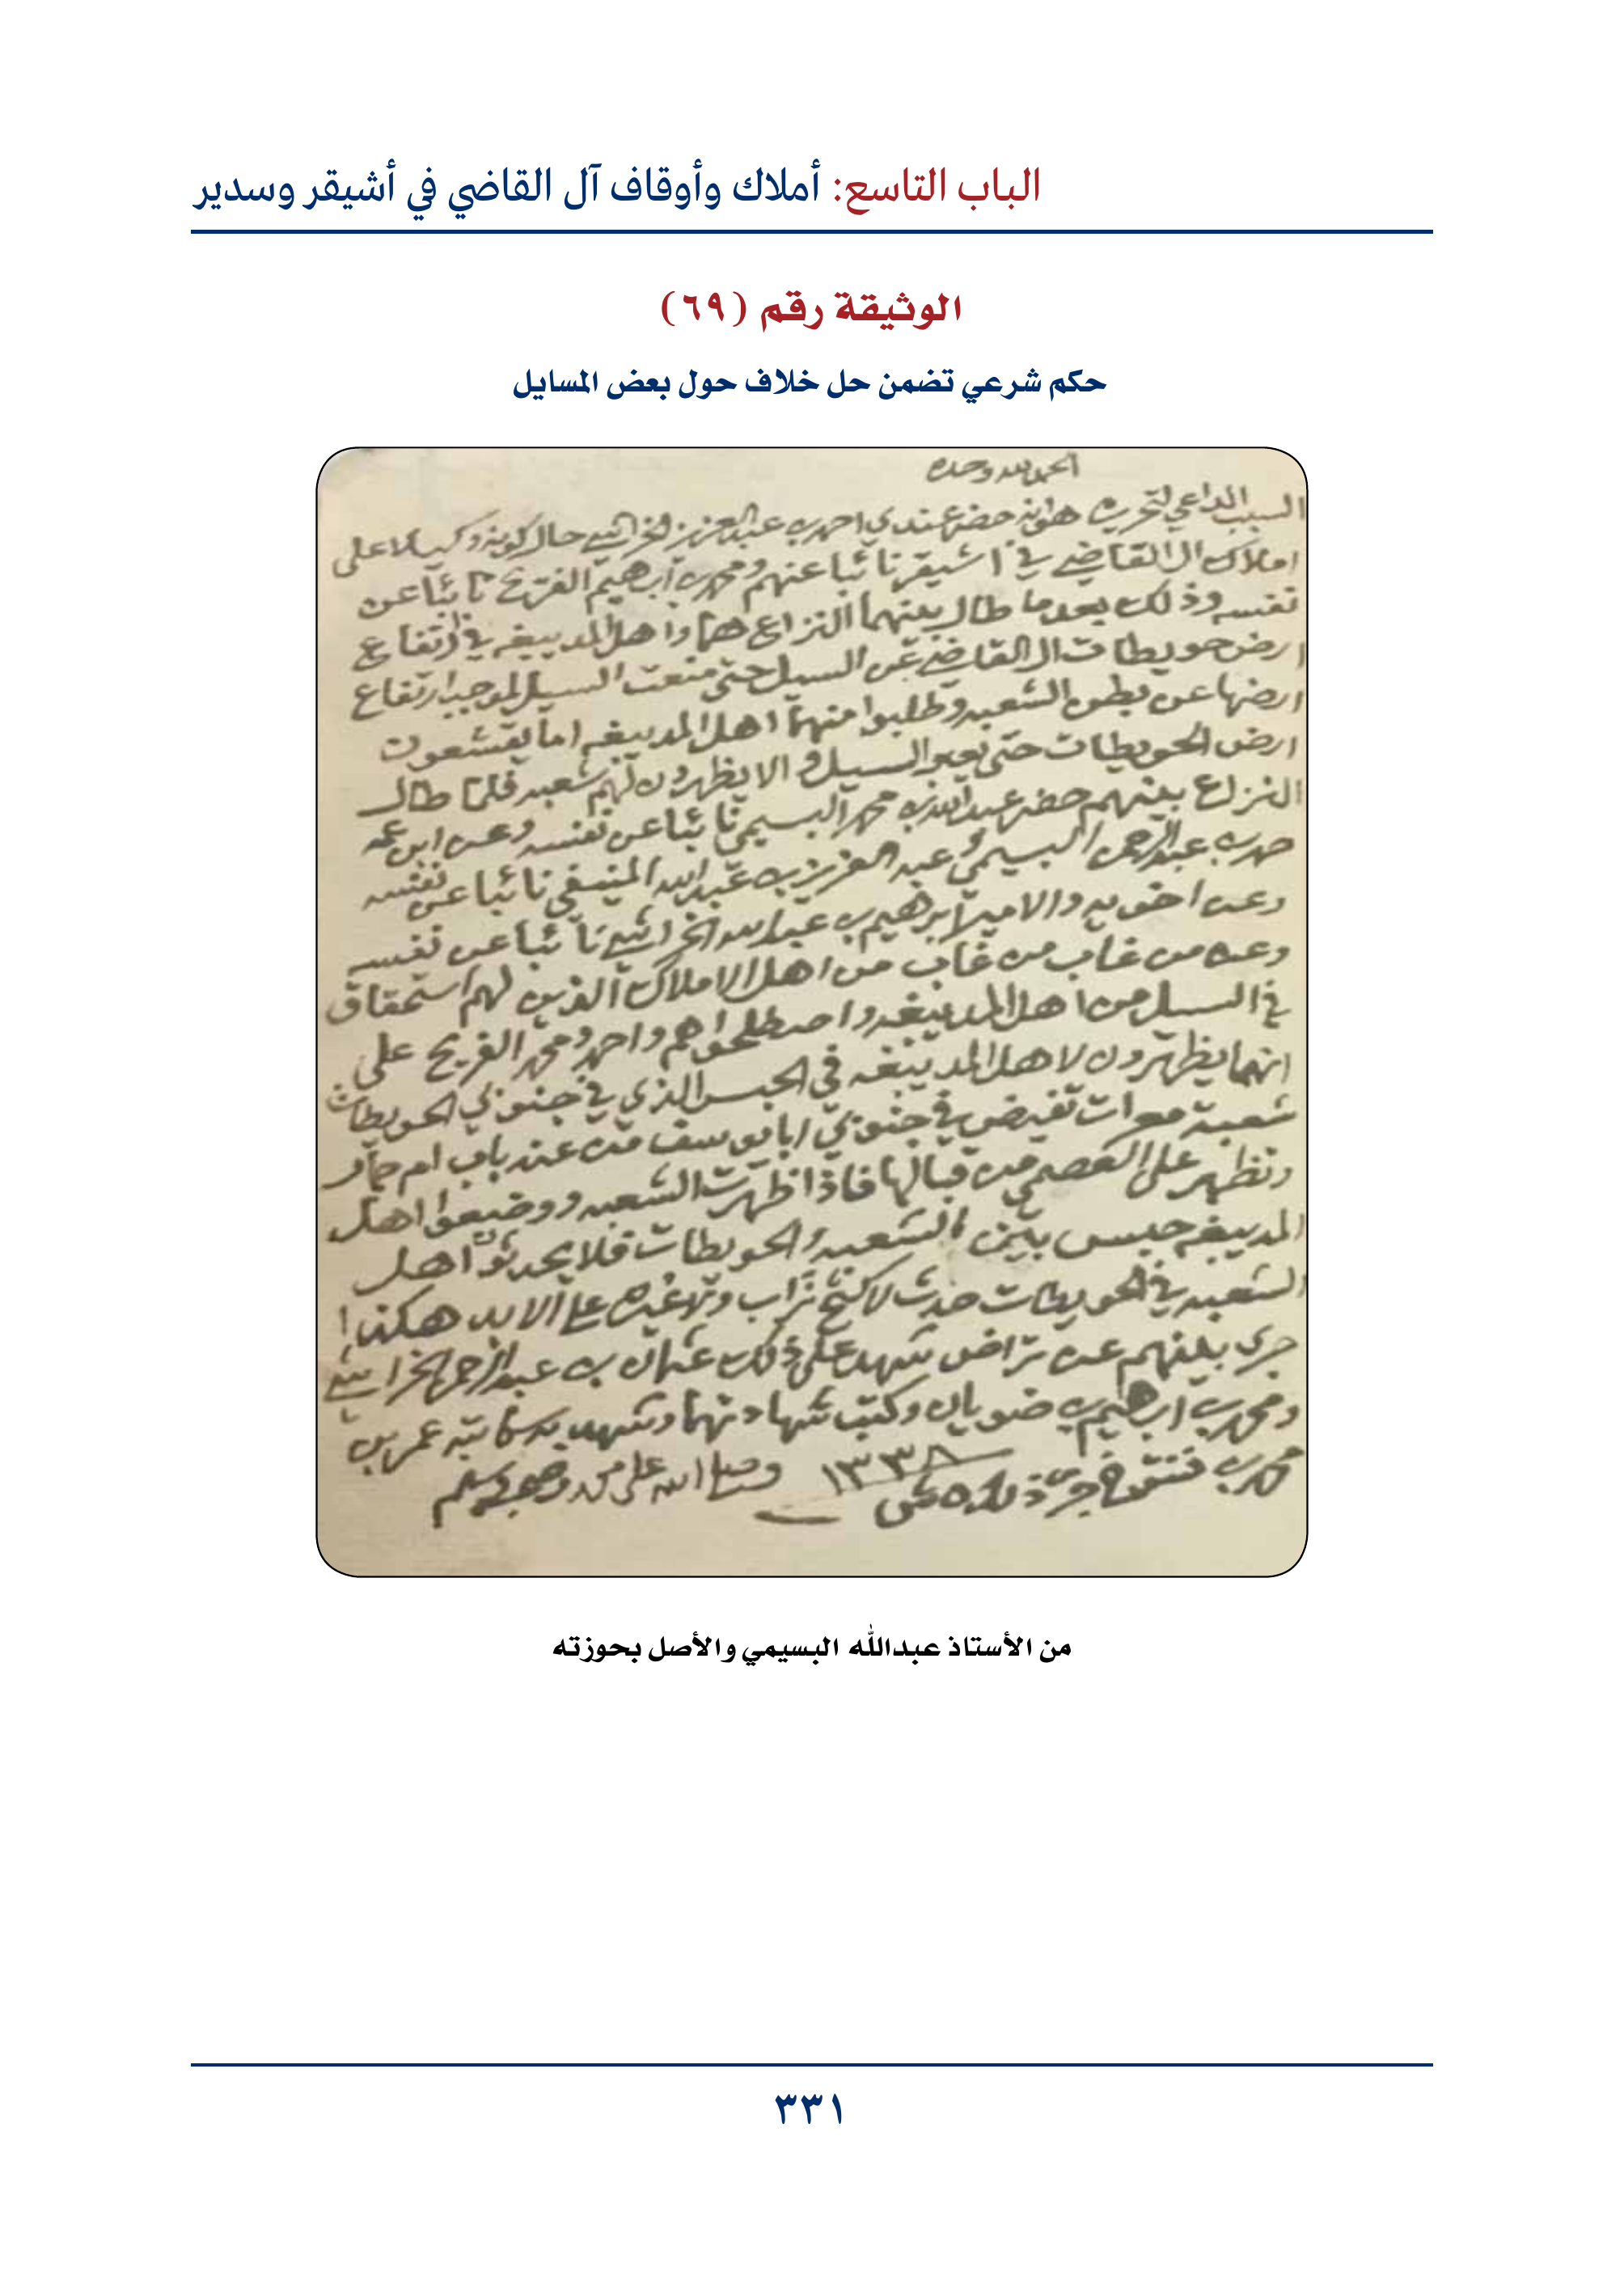 الباب التاسع: أملاك وأوقاف آل القاضي في أشيقر وسدير
الوثيقة رقم (٦٩)
حكم شرعي تضمن حل خلاف حول بعض المسايل
الحمد لله وحده
السبب الداعي لتحريره هو انه حضر عندي احمد بن عبدالعزيز الخراشي حال كونه وكيلا على
املاك ال القاضي في اشيقر نائبا عنهم ومحمد بن ابراهيم الفريح نائبا عن
نفسه وذلك بعد ما طال بينهما النزاع هما واهل المديبغه في ارتفاع
ارض حويطات ال القاضي عن السيل حتى منعت السيل لموجب ارتفاع
ارضها عن بطن الشعبه وطلبوا منهما اهل المديبغه اما يقشعون
ارض الحويطات حتى يعبر السيل والا يظهرون لهم شعبه فلما طال
النزاع بينهم حضر عبدالله بن محمد البسيمي نائبا عن نفسه وعن ابن عمه
حمد بن عبدالرحمن البسيمي وعبدالعزيز بن عبدالله المنيفي نائبا عن نفسه
وعن اخويه والامير ابراهيم بن عبدالله الخراشي نائبا عن نفسه
وعن من غاب من غاب من اهل الاملاك الذين لهم استحقاق
في السيل من اهل المديبغه واصطلحوا هم واحمد ومحمد الفريح على
انهما يظهرون لاهل المديبغه في الحبس الذي في جنوبي الحويطات
شعبة تفيض في جنوبي ابا يوسف من عند باب ام حمار
وتظهر على من قبالها فاذا ظهرت الشعبه ووضعوا اهل
المديبغه حبس بين الشعبه والحويطات فلا يحدثون اهل
الشعبه في الحويطات حدث لا تراب وغيره على الابد هكذا
جرى بينهم عن تراض شهد على ذلك عثمان بن عبدالرحمن الخراشي
ومحمد بن ابراهيم بن ضويان وكتب شهادتهما وشهد به كاتبه عمر بن
محمد بن فنتوخ جرى ذلك ١٣٣٨ وصلى الله على محمد وصحبه وسلم
من الأستاذ عبدالله البسيمي والأصل بحوزته
٣٣١